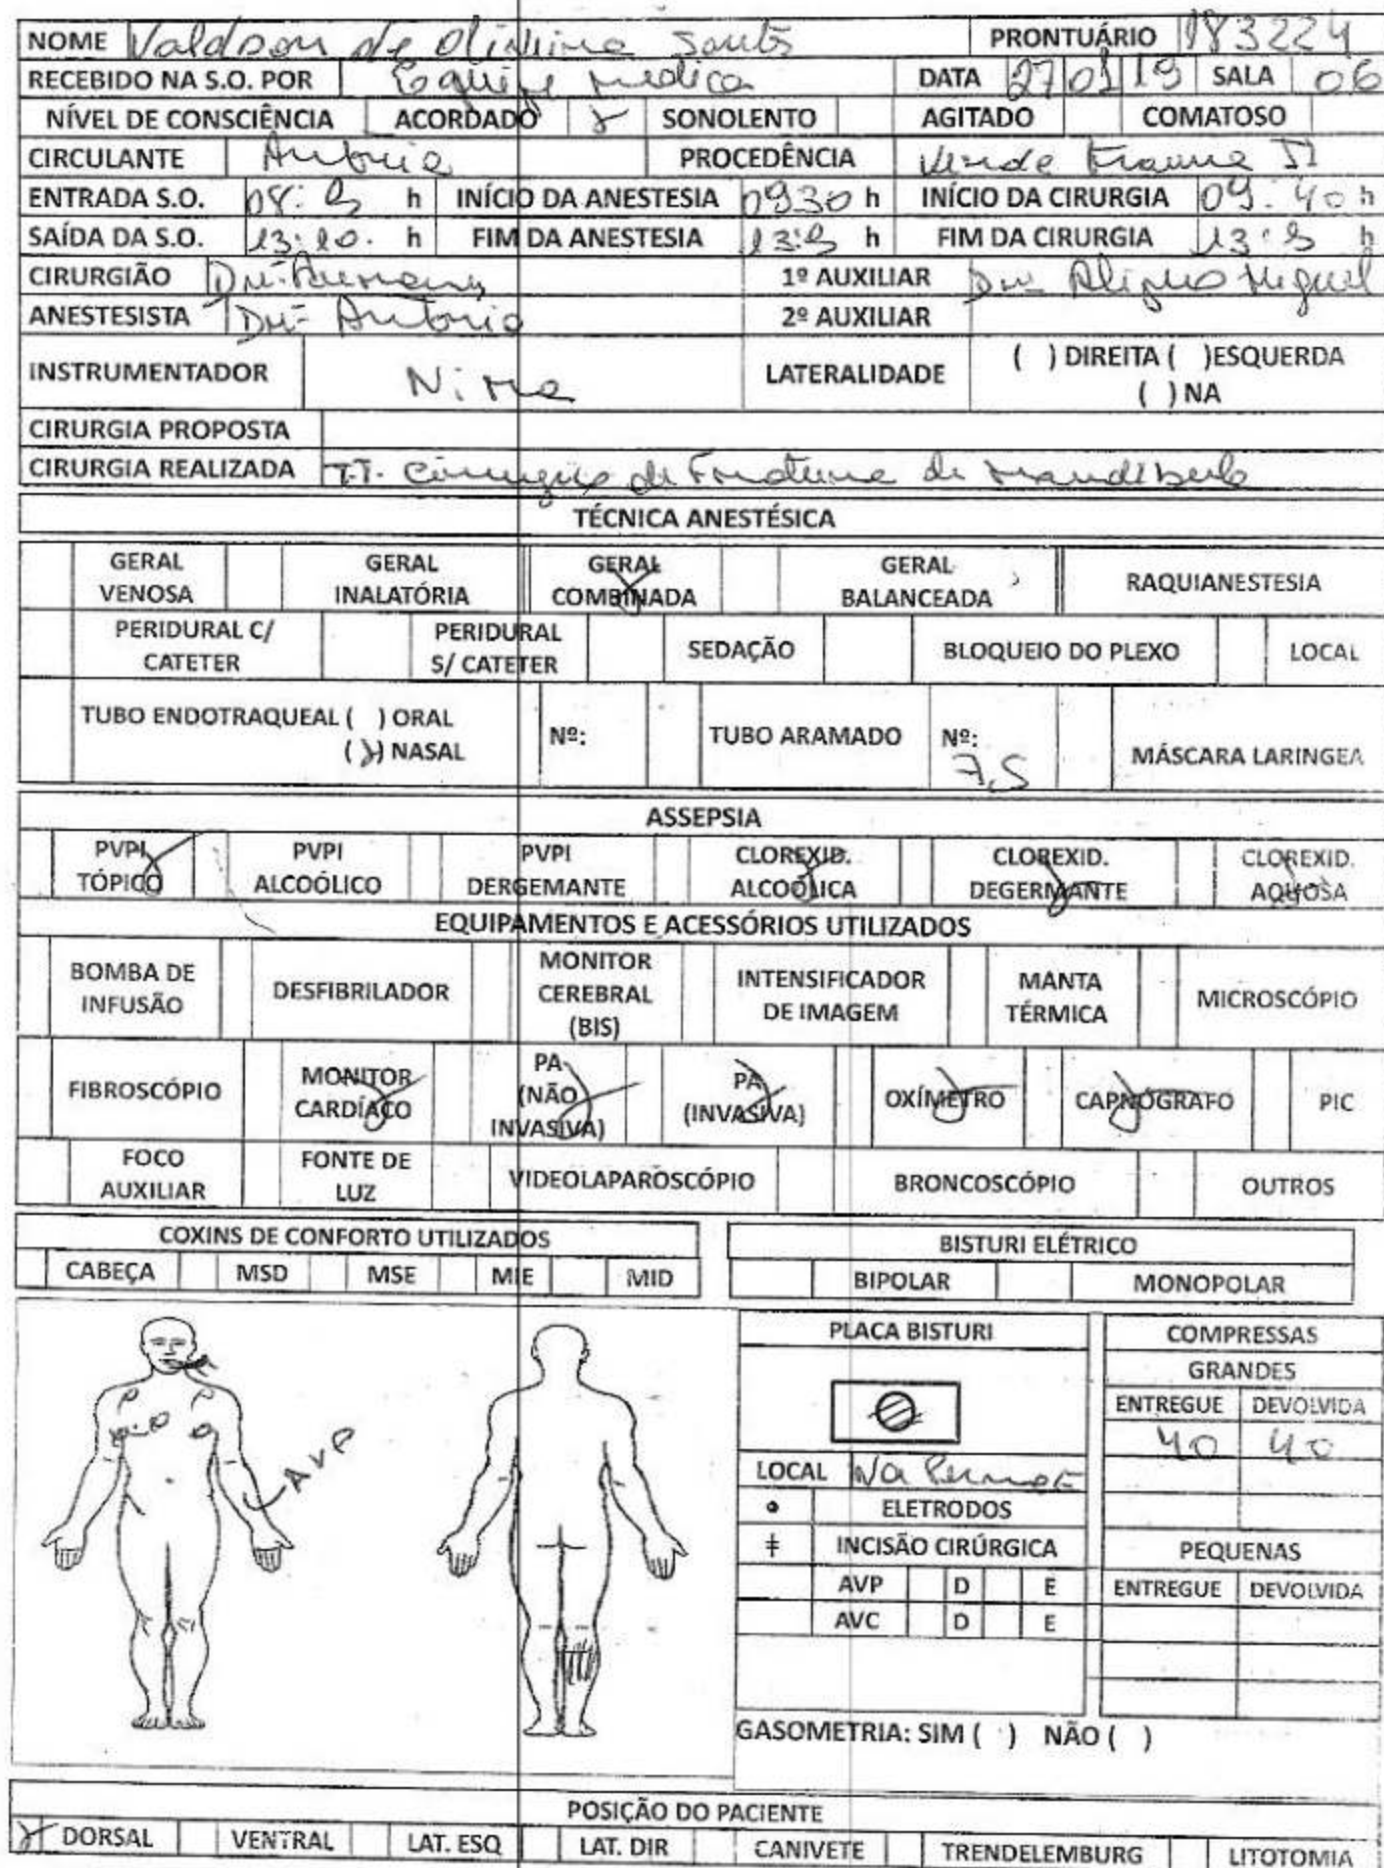 NOME Valdson de Oliveira Santos PRONTUÁRIO 183224
RECEBIDO NA S.O. POR Equipe medica DATA 27 01 19 SALA 06
NÍVEL DE CONSCIÊNCIA ACORDADO X SONOLENTO AGITADO COMATOSO
CIRCULANTE PROCEDÊNCIA Verde Trauma II
ENTRADA S.O. h INÍCIO DA ANESTESIA 0930 h INÍCIO DA CIRURGIA 09:40 h
SAÍDA DA S.O. h FIM DA ANESTESIA h FIM DA CIRURGIA h
CIRURGIÃO 1º AUXILIAR Miguel
ANESTESISTA Drº Antonio 2º AUXILIAR
INSTRUMENTADOR LATERALIDADE ( ) DIREITA ( )ESQUERDA
( ) NA
CIRURGIA PROPOSTA
CIRURGIA REALIZADA T.T. Cirurgico de Fratura de mandibula
TÉCNICA ANESTÉSICA
GERAL VENOSA GERAL INALATÓRIA GERAL COMBINADA X GERAL BALANCEADA RAQUIANESTESIA
PERIDURAL C/ CATETER PERIDURAL S/ CATETER SEDAÇÃO BLOQUEIO DO PLEXO LOCAL
TUBO ENDOTRAQUEAL ( ) ORAL
(X) NASAL Nº: TUBO ARAMADO Nº: 7,5 MÁSCARA LARINGEA
ASSEPSIA
PVPI TÓPICO X PVPI ALCOÓLICO PVPI DERGEMANTE CLOREXID. ALCOÓLICA X CLOREXID. DEGERMANTE X CLOREXID. AQUOSA X
EQUIPAMENTOS E ACESSÓRIOS UTILIZADOS
BOMBA DE INFUSÃO DESFIBRILADOR MONITOR CEREBRAL (BIS) INTENSIFICADOR DE IMAGEM MANTA TÉRMICA MICROSCÓPIO
FIBROSCÓPIO MONITOR CARDÍACO X PA (NÃO INVASIVA) X PA (INVASIVA) X OXÍMETRO X CAPNÓGRAFO X PIC
FOCO AUXILIAR FONTE DE LUZ VIDEOLAPAROSCÓPIO BRONCOSCÓPIO OUTROS
COXINS DE CONFORTO UTILIZADOS BISTURI ELÉTRICO
CABEÇA MSD MSE MIE MID BIPOLAR MONOPOLAR
PLACA BISTURI COMPRESSAS
GRANDES
ENTREGUE DEVOLVIDA
40 40
AVP
LOCAL Na
ELETRODOS
INCISÃO CIRÚRGICA PEQUENAS
AVP D E ENTREGUE DEVOLVIDA
AVC D E
GASOMETRIA: SIM ( ) NÃO ( )
POSIÇÃO DO PACIENTE
X DORSAL VENTRAL LAT. ESQ LAT. DIR CANIVETE TRENDELEMBURG LITOTOMIA